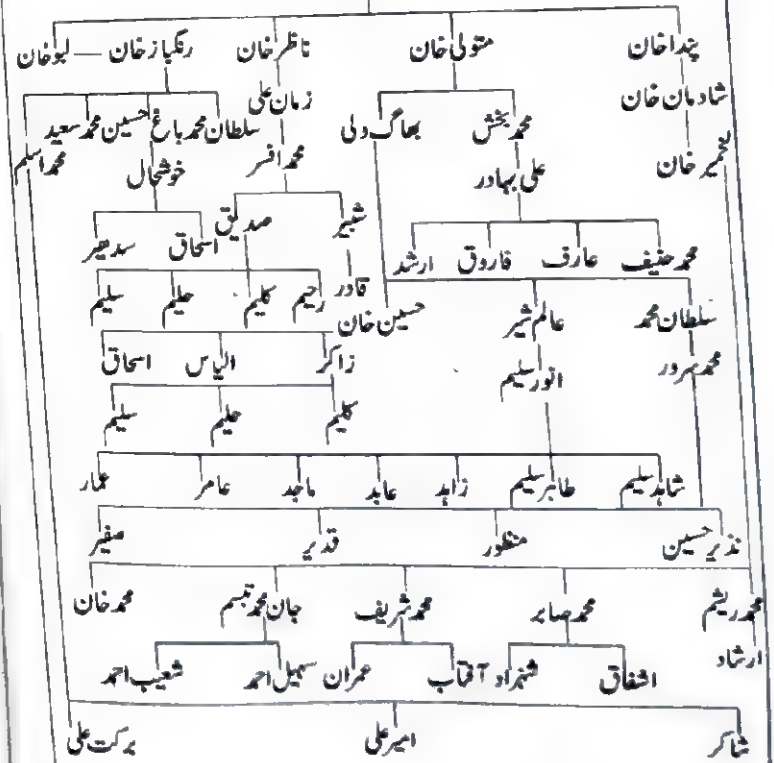 پنداخان متولی خان ناظر خان رنگباز خان لبوخان
شادمان خان زمان علی
محمد بخش بھاگ ولی سلطان محمد باغ حسین محمد سعید محمد اسلم
ضمیر خان علی بہادر محمد افسر خوشحال
شبیر صدیق اسحاق سدھیر
محمد حنیف عارف فاروق ارشد
قادر رحیم کلیم حلیم سلیم
سلطان محمد عالم شیر حسین خان
محمد سرور انور سلیم زاکر الیاس اسحاق
کلیم حلیم سلیم
شاہد سلیم طاہر سلیم زاہد عابد ماجد عامر عمار
نذیر حسین منظور قدیر صفیر
محمد ریشم محمد صابر محمد شریف جان محمد تبسم محمد خان
ارشاد اشفاق شہزاد آفتاب عمران سہیل احمد شعیب احمد
شاکر امیر علی برکت علی